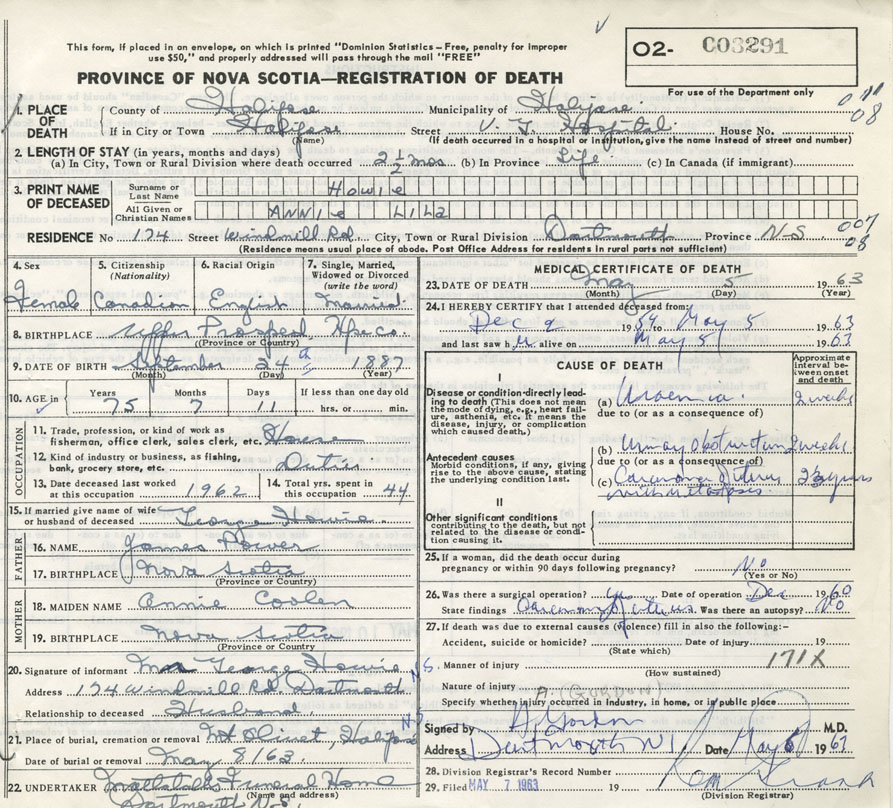 This form, if placed in an envelope, on which is printed "Dominion Statistics – Free, penalty for improper
use $50," and properly addressed will pass through the mail "FREE"
PROVINCE OF NOVA SCOTIA—REGISTRATION OF DEATH
02- C03291
For use of the Department only
1. PLACE OF DEATH County of Halifax Municipality of Halifax
If in City or Town Halifax (Name) Street V. G. Hospital House No.
(If death occurred in a hospital or institution, give the name instead of street and number)
08
2. LENGTH OF STAY (in years, months and days)
(a) In City, Town or Rural Division where death occurred 2 1/2 mos (b) In Province Life (c) In Canada (if immigrant)
3. PRINT NAME OF DECEASED Surname or Last Name HOWIE
All Given or Christian Names ANNIE LILA
RESIDENCE No 174 Street Windmill Rd. City, Town or Rural Division Dartmouth Province N.S. 007
08
(Residence means usual place of abode. Post Office Address for residents in rural parts not sufficient)
4. Sex Female
5. Citizenship (Nationality) Canadian
6. Racial Origin English
7. Single, Married, Widowed or Divorced (write the word) Married
8. BIRTHPLACE Upper Prospect, Hfx Co. (Province or Country)
9. DATE OF BIRTH September 24th 1887
(Month) (Day) (Year)
10. AGE in Years 75 Months 7 Days 11 If less than one day old hrs. or min.
OCCUPATION
11. Trade, profession, or kind of work as fisherman, office clerk, sales clerk, etc. House
12. Kind of industry or business, as fishing, bank, grocery store, etc. Duties
13. Date deceased last worked at this occupation 1962 14. Total yrs. spent in this occupation 44
15. If married give name of wife or husband of deceased George Howie
FATHER
16. NAME James Power
17. BIRTHPLACE Nova Scotia (Province or Country)
MOTHER
18. MAIDEN NAME Annie Coolen
19. BIRTHPLACE Nova Scotia (Province or Country)
20. Signature of informant Mr George Howie
Address 174 Windmill Rd Dartmouth N.S.
Relationship to deceased Husband
21. Place of burial, cremation or removal Mt Olivet, Halifax N.S.
Date of burial or removal May 8/63
22. UNDERTAKER Mattatalls Funeral Home
(Name and address)
Dartmouth N.S.
MEDICAL CERTIFICATE OF DEATH
23. DATE OF DEATH May 5 1963
(Month) (Day) (Year)
24. I HEREBY CERTIFY that I attended deceased from:
Dec 9 1959 to May 5 1963
and last saw her alive on May 5 1963
CAUSE OF DEATH
Approximate interval between onset and death
I
Disease or condition directly leading to death (This does not mean the mode of dying, e.g., heart failure, asthenia, etc. It means the disease, injury, or complication which caused death.)
(a) Uraemia 2 weeks
due to (or as a consequence of)
Antecedent causes
Morbid conditions, if any, giving rise to the above cause, stating the underlying condition last.
(b) Urinary obstruction 2 weeks
due to (or as a consequence of)
(c) Carcinoma of uterus years
with metastasis
II
Other significant conditions contributing to the death, but not related to the disease or condition causing it.
25. If a woman, did the death occur during pregnancy or within 90 days following pregnancy? No
(Yes or No)
26. Was there a surgical operation? yes Date of operation Dec 1960
State findings Carcinoma of uterus Was there an autopsy? No
27. If death was due to external causes (violence) fill in also the following:–
Accident, suicide or homicide? Date of injury 19
(State which)
Manner of injury 171X
(How sustained)
Nature of injury
Specify whether injury occurred in Industry, in home, or in public place
A. (GORDON)
Signed by A Gordon M.D.
Address Dartmouth NS Date May 6 1963
28. Division Registrar's Record Number
29. Filed MAY 7 1963 19
(Division Registrar)